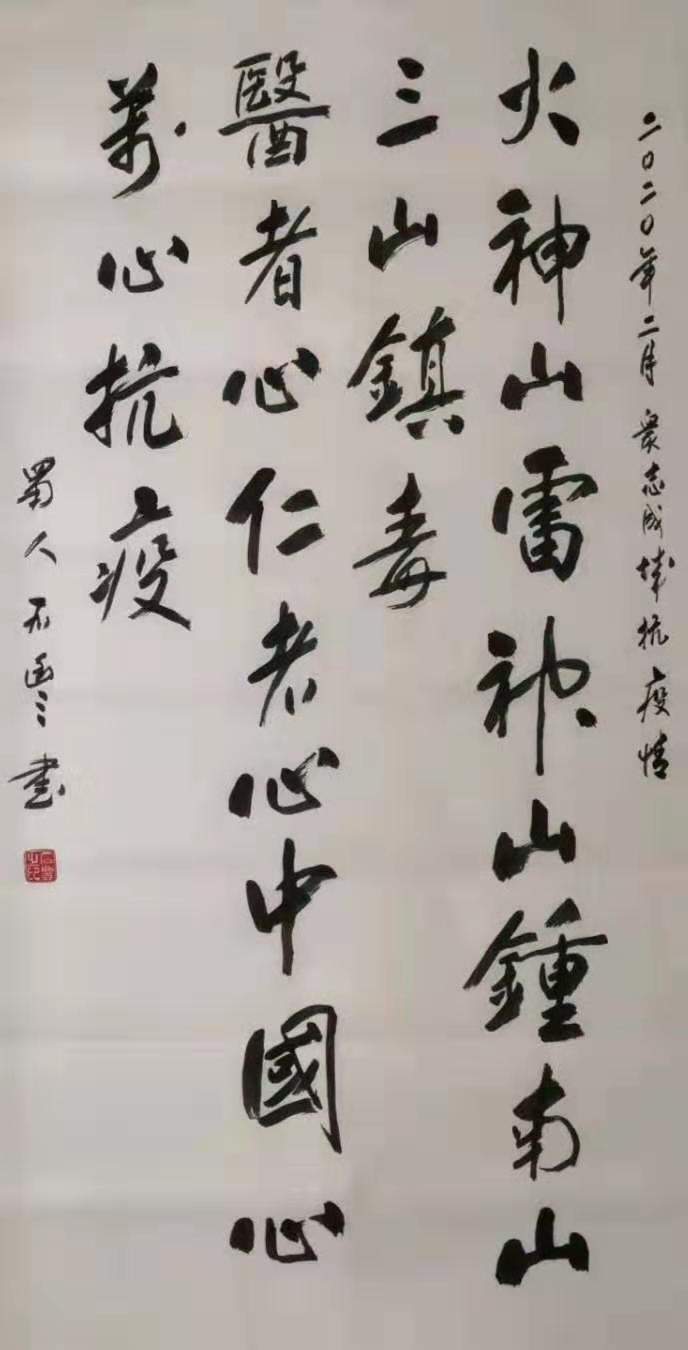 二〇二〇年二月 衆志成城抗疫情
火神山雷神山鍾南山
三山鎮毒
醫者心仁者心中國心
萬心抗疫
蜀人 書